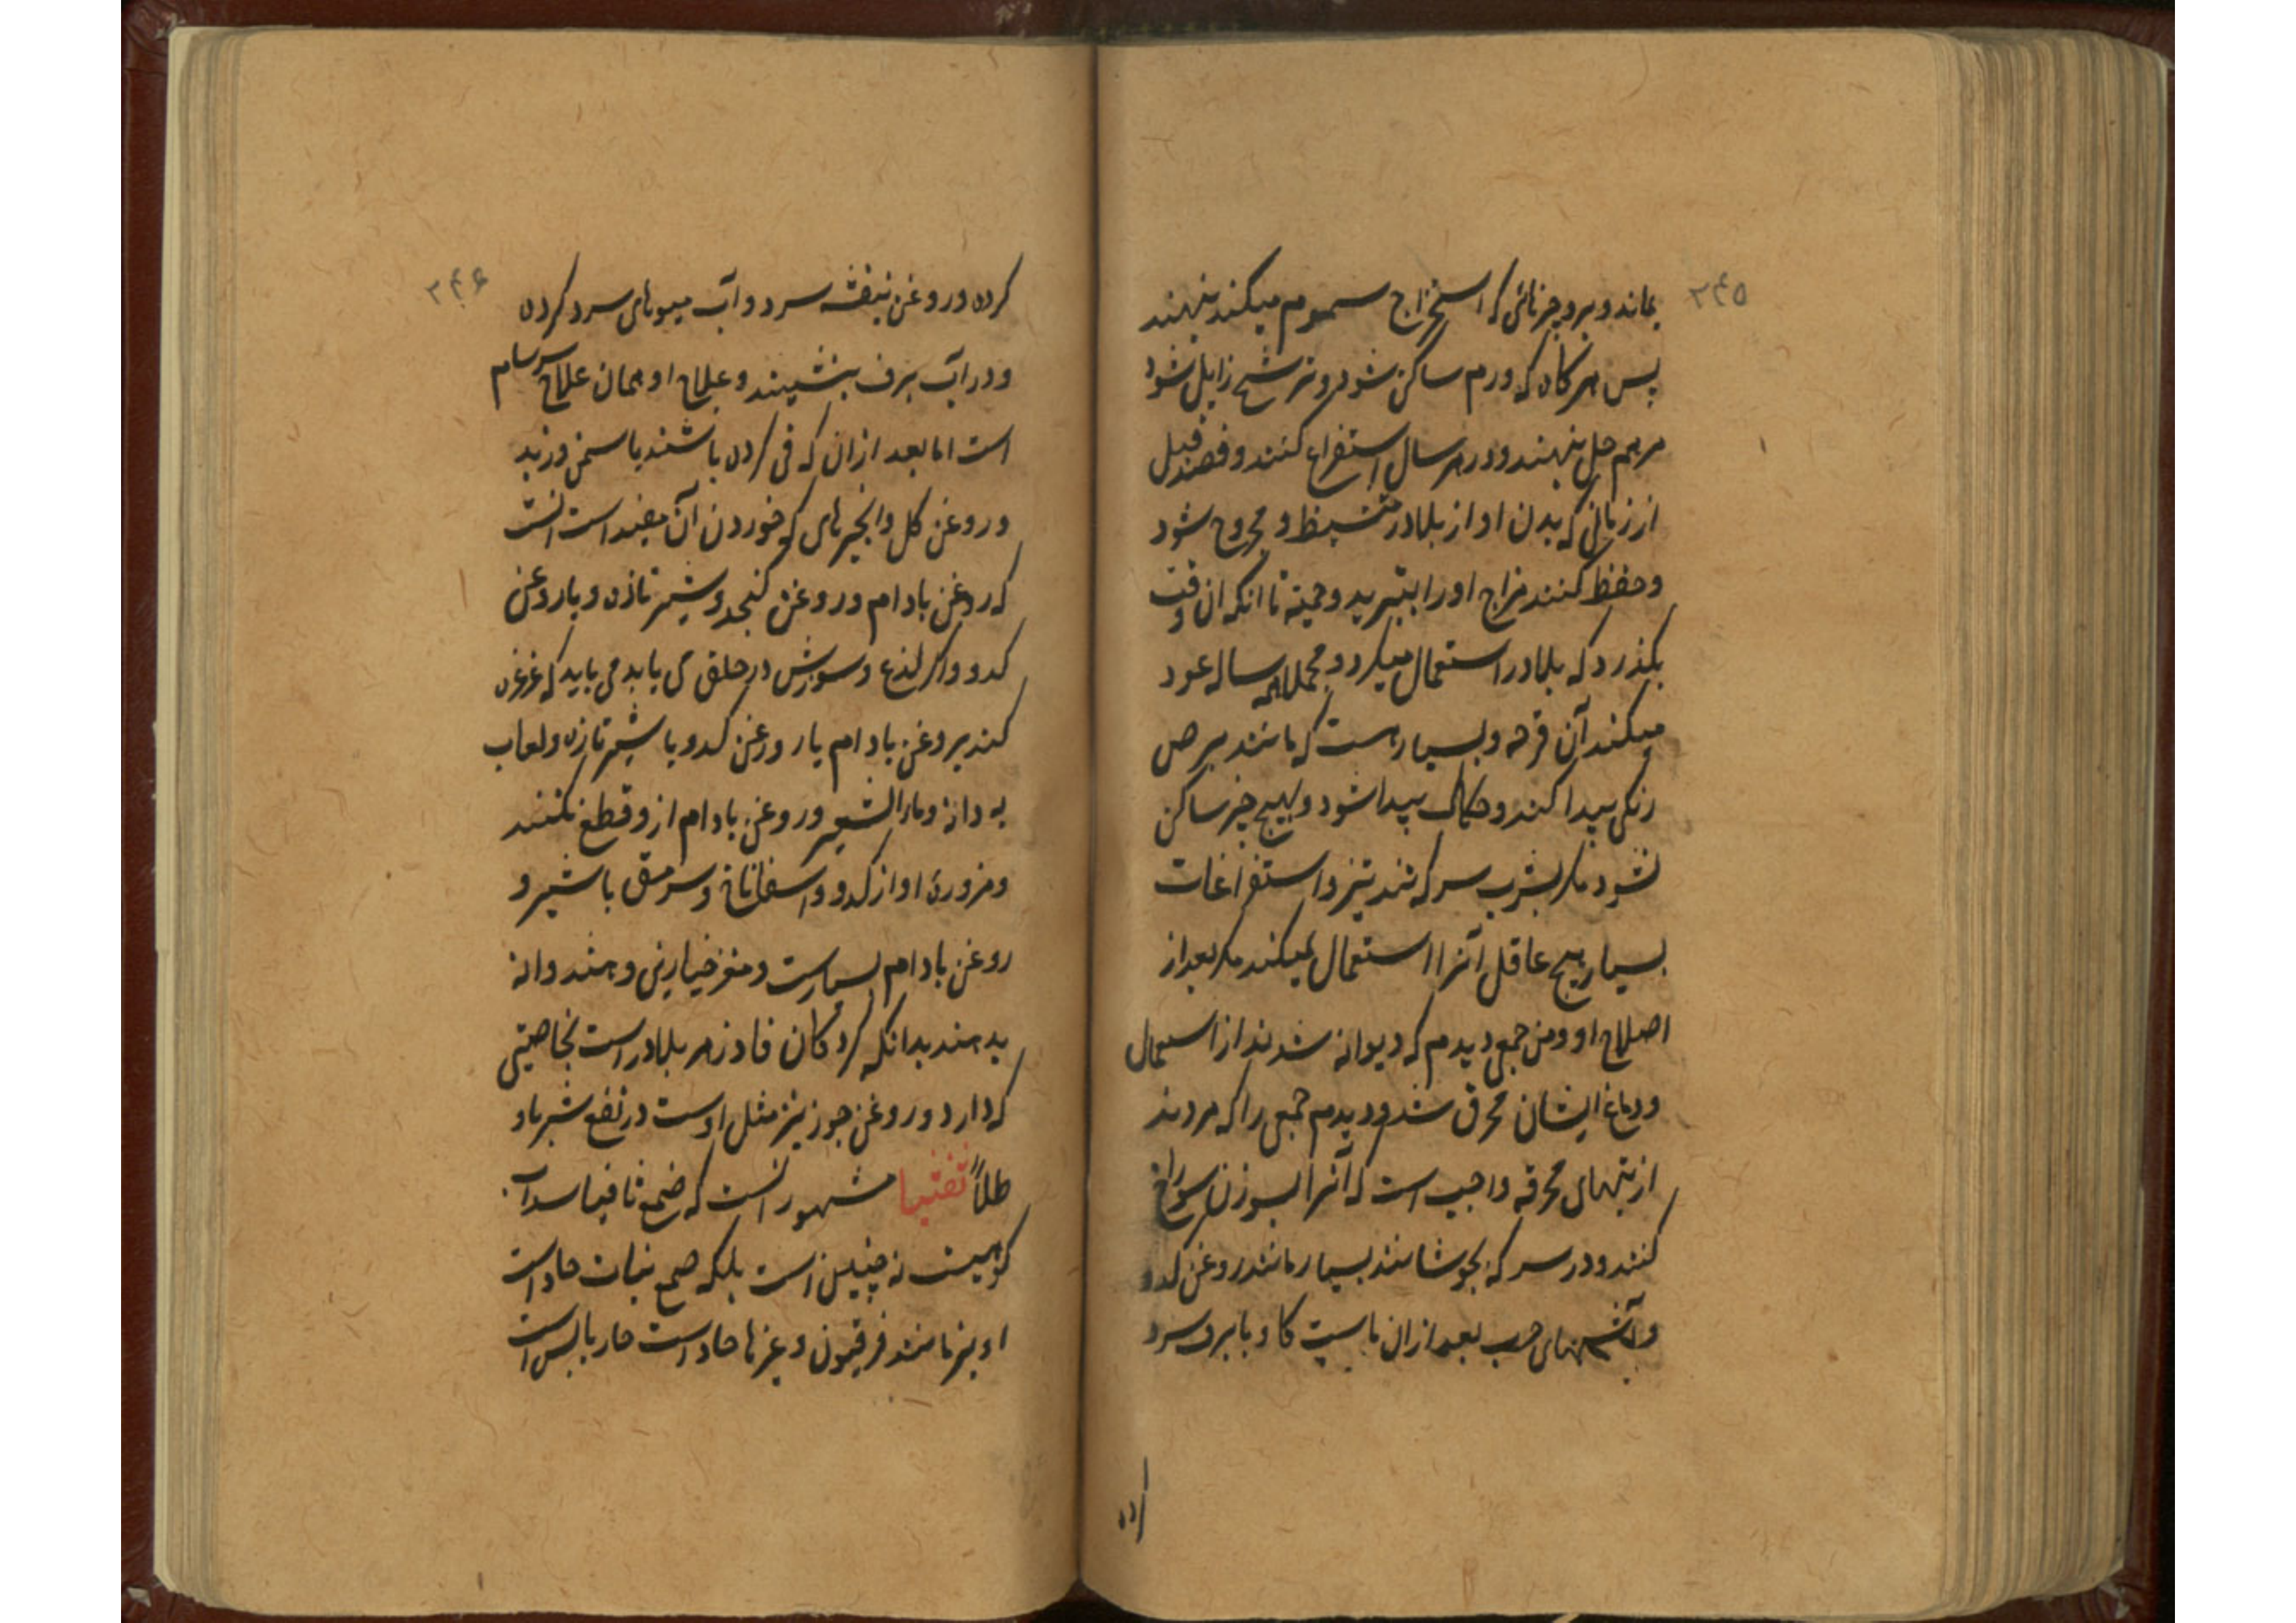 ۲۴۵
بماند و برو چیزهائی که استخراج سموم میکند بنهند
پس هرکاه که ورم ساکن شود و ترشح زایل شود
مرهم حل بنهند و در هر سال استفراغ کنند و فصد قبل
از زمانی که بدن او از بلادر متشیط و مجروح شود
و حفظ کنند مزاج او را بتبرید و حمیه تا انکه ان وقت
بکذرد که بلادر استعمال میکرد و مجملا همه ساله عود
میکند آن قرحه و بسیار هست که مانند برص
رنکی پیدا کند و حکاک پیدا شود و بهیچ چیز ساکن
نشود مکر بشرب سرکه تند تیز و استفراغات
بسیار هیچ عاقل آنرا استعمال نمیکند مکر بعد از
اصلاح او و من جمعی دیدم که دیوانه شدند از استعمال
و دماغ ایشان محرق شد و دیدم جمعی را که مردند
از تبهای محرقه واجب است که آنرا بسوزن سوراخ
کنند و در سرکه بجوشانند بسیار مانند روغن کدو
و آشهای چرب بعد از ان ماست کاو با برف سرد
کرده
۲۴۶
کرده و روغن بنفشه سرد و آب میوهای سرد کرده
و در آب برف بنشینند و علاج او همان علاج سرسام
است اما بعد از ان که قی کرده باشند با سمن و زبد
و روغن کل و انجیرهای که خوردن آن مفید است انست
که روغن بادام و روغن کنجد و شیر تازه و با روغن
کدو و اکر لذع و سوزش در حلق می یابد می باید که غرغره
کند بروغن بادام یا روغن کدو یا شیر تازه و لعاب
به دانه و ماء الشعیر و روغن بادام ازو قطع نکنند
و مزوره او از کدو و اسفاناخ و سرمق با شیر و
روغن بادام بسیارست و مغز خیارین و هندوانه
بدهند بدانکه کردکان فادزهر بلادر است بخاصیتی
که دارد و روغن جوز نیز مثل اوست در نفع شربا و
طلاً تفتیا مشهور انست که صمغ ثافیا سداب
کوهیست نه چنین است بلکه صمغ نبات حاد است
او نیز مانند فرفیون و غیرها حاد است حار یابس است